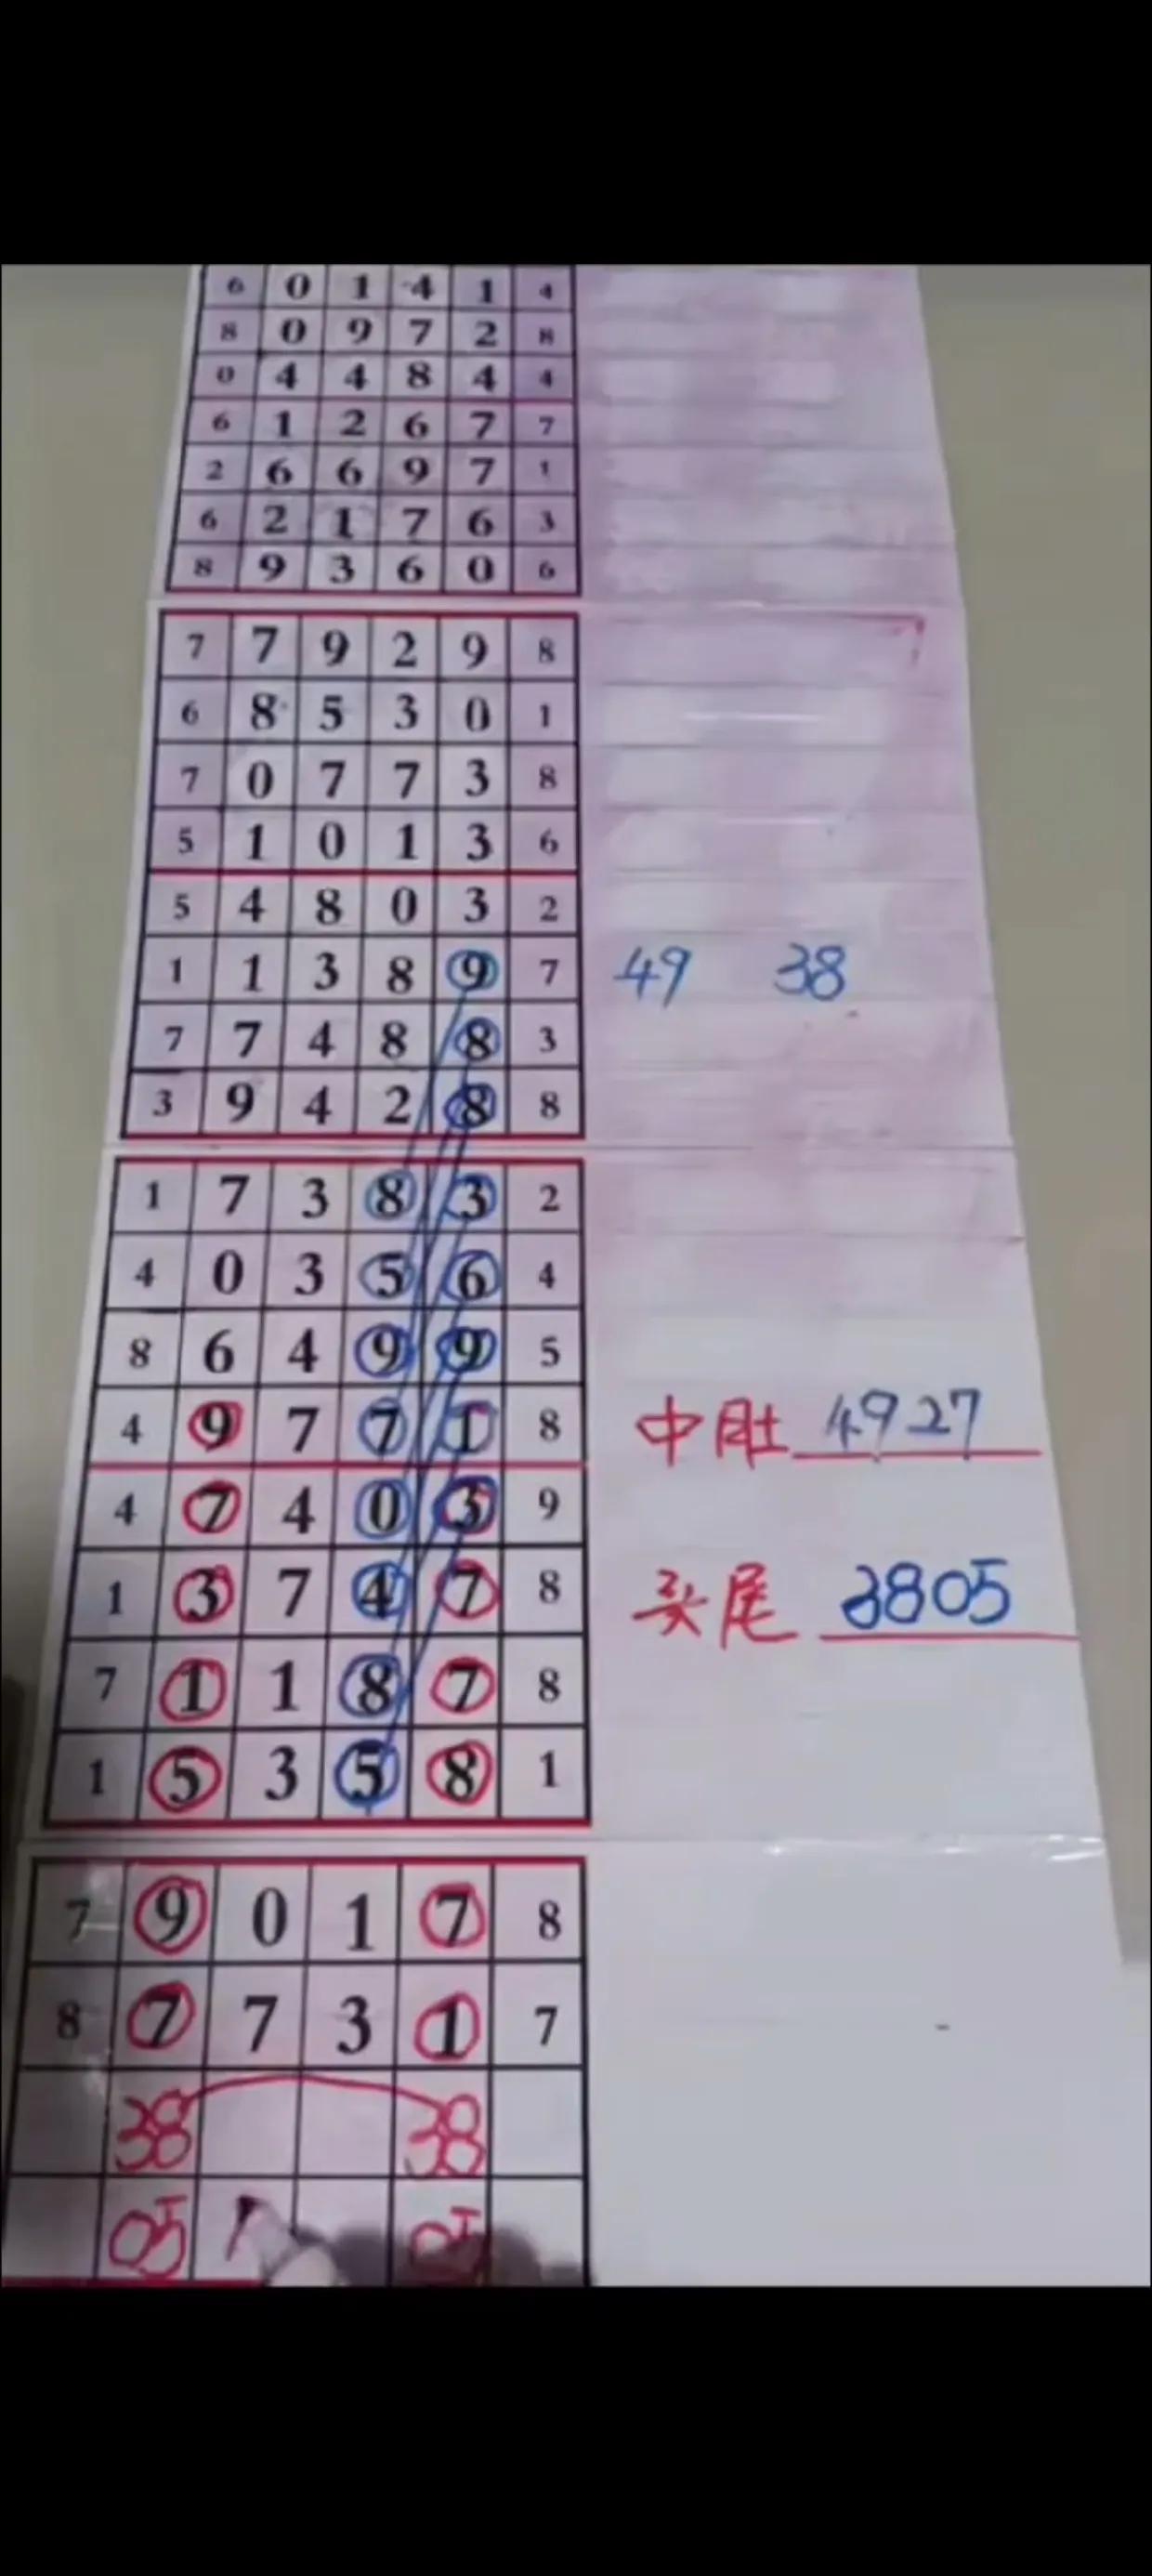 6 0 1 4 1 4
8 0 9 7 2 8
0 4 4 8 4 4
6 1 2 6 7 7
2 6 6 9 7 1
6 2 1 7 6 3
8 9 3 6 0 6
7 7 9 2 9 8
6 8 5 3 0 1
7 0 7 7 3 8
5 1 0 1 3 6
5 4 8 0 3 2
1 1 3 8 9 7 49 38
7 7 4 8 8 3
3 9 4 2 8 8
1 7 3 8 3 2
4 0 3 5 6 4
8 6 4 9 9 5
4 9 7 7 1 8 中肚 4927
4 7 4 0 3 9
1 3 7 4 7 8 头尾 3805
7 1 1 8 7 8
1 5 3 5 8 1
7 9 0 1 7 8
8 7 7 3 1 7
38 38
05 05